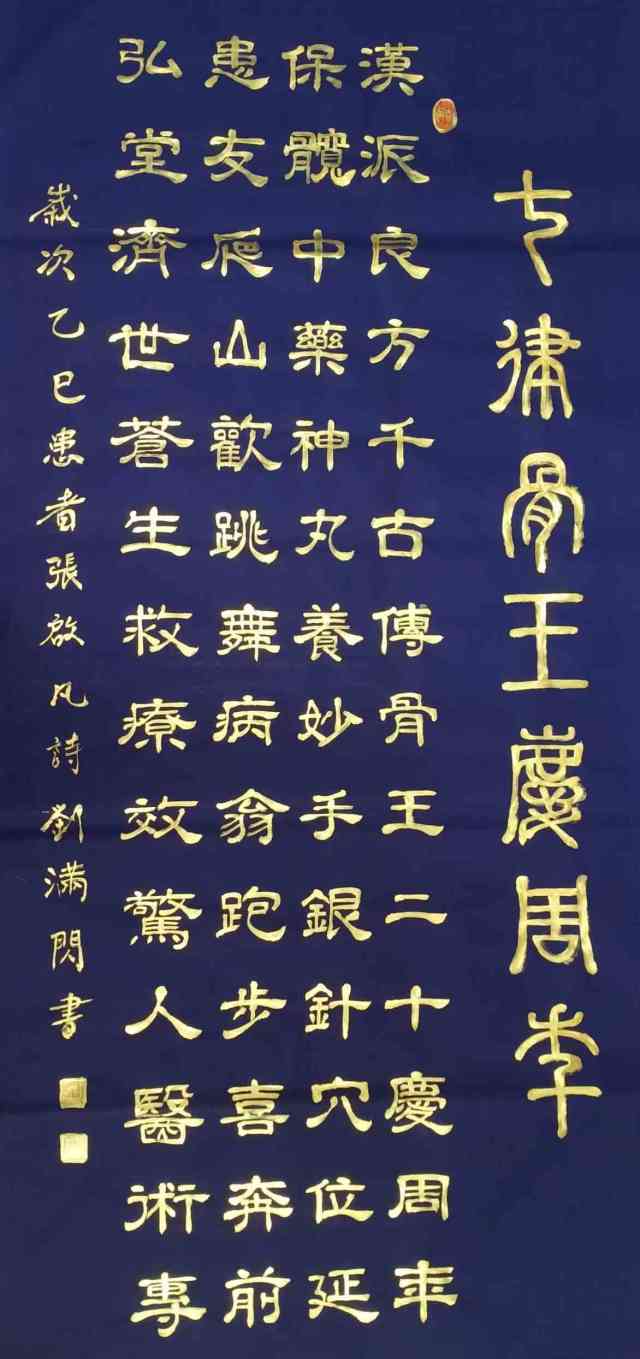 七律骨王慶周年
漢派良方千古傳骨王二十慶周年
保體中藥神丸養妙手銀針穴位延
患友爬山歡跳舞病翁跑步喜奔前
弘堂濟世蒼生救療效驚人醫術專
歲次乙巳患者張啟凡詩劉滿閃書